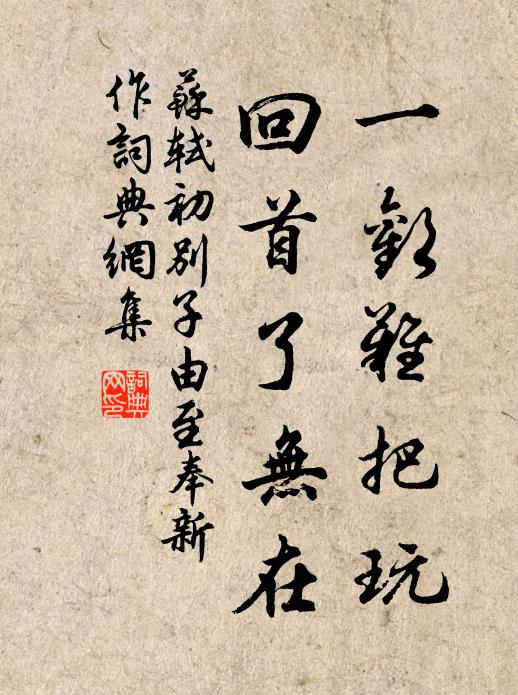 一歡難把玩
回首了無在
蘇軾初別子由至奉新
作詞典網集
詞典
网印